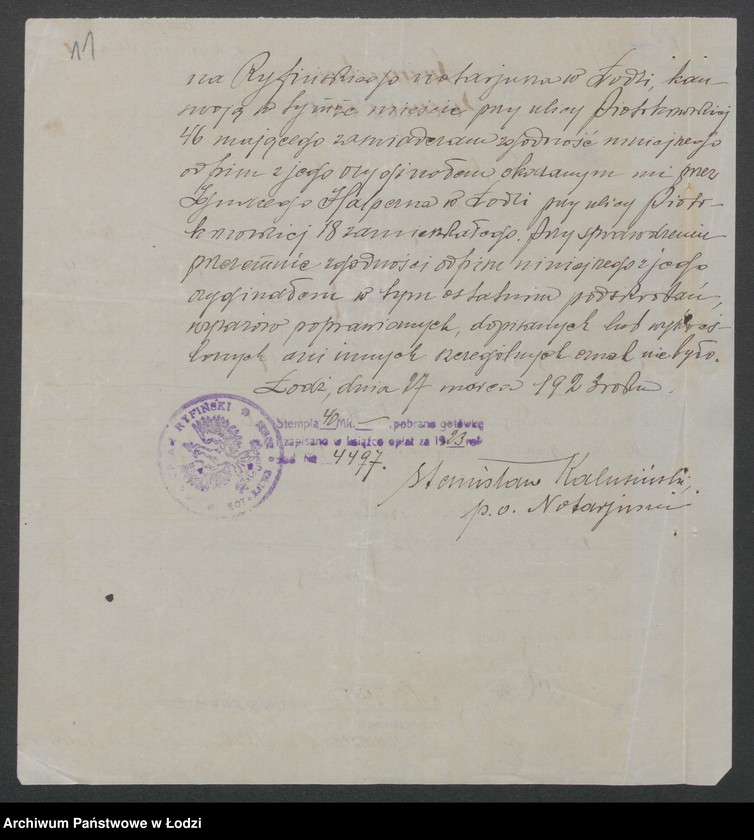 11
na Ryfińskiego notarjusza w Łodzi, kan-
torję w tymże mieście przy ulicy Piotrkowskiej
46 mającego zaświadczam zgodność niniejszego
odpisu z jego oryginałem okazanym mi przez
Halperna w Łodzi przy ulicy Piotr-
kowskiej 18 zamieszkałego. Przy sprawdzeniu
przezemnie zgodności odpisu niniejszego z jego
oryginałem w tym ostatnim podskrobań,
wyrazów poprawianych, dopisanych lub wykreś-
lonych ani innych szczególnych oznak nie było.
Łódź, dnia 27 marca 1923 roku.
RYFIŃSKI
Stempla 40 Mk. — pobrano gotówką
i zapisano w książce opłat za 1923 rok
pod No 4497.
Stanisław Kałusiński,
p.o. Notarjusza
Archiwum Państwowe w Łodzi